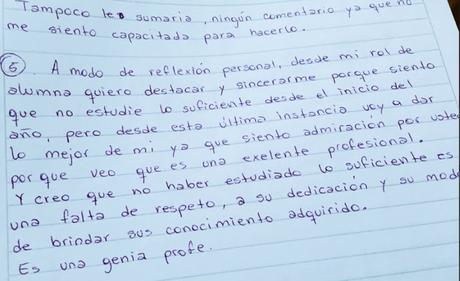 Tampoco le sumaria, ningún comentario ya que no
me siento capacitada para hacerlo.
⑤ A modo de reflexión personal, desde mi rol de
alumna quiero destacar y sincerarme porque siento
que no estudie lo suficiente desde el inicio del
año, pero desde esta última instancia voy a dar
lo mejor de mi ya que siento admiración por usted
por que veo que es una exelente profesional.
Y creo que no haber estudiado lo suficiente es
una falta de respeto, a su dedicación y su mod
de brindar sus conocimiento adquirido.
Es una genia profe.